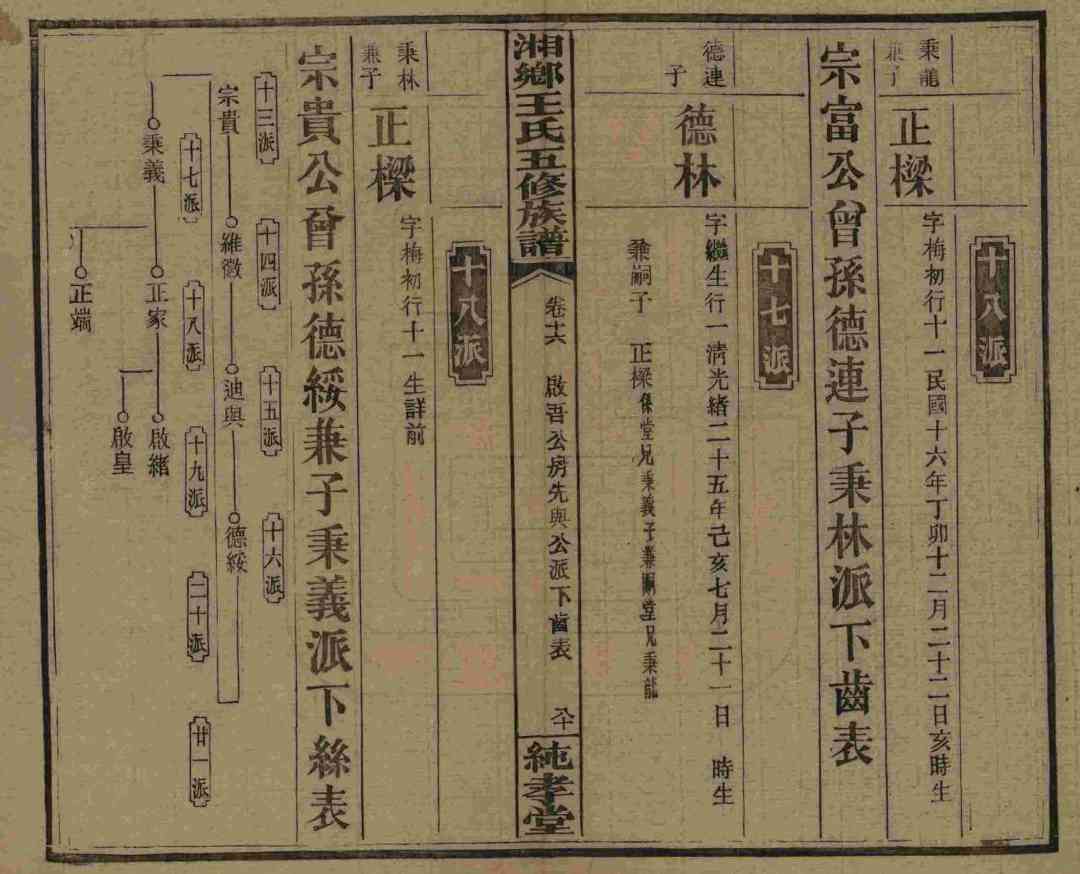 十八派
秉龍
兼子
正樑
字梅初行十一民國十六年丁卯十二月二十二日亥時生
宗富公曾孫德連子秉林派下齒表
十七派
德連
子
德林
字繼生行一清光緒二十五年己亥七月二十一日 時生
兼嗣子 正樑係堂兄秉義子兼嗣堂兄秉龍
湘鄉王氏五修族譜
卷十六 啟吾公房先與公派下齒表 八十
純孝堂
十八派
秉林
兼子
正樑
字梅初行十一生詳前
宗貴公曾孫德綏兼子秉義派下絲表
十三派
十四派
十五派
十六派
宗貴
維徵
迪與
德綏
十七派
十八派
十九派
二十派
廿一派
秉義
正家
啟緒
啟皇
正端